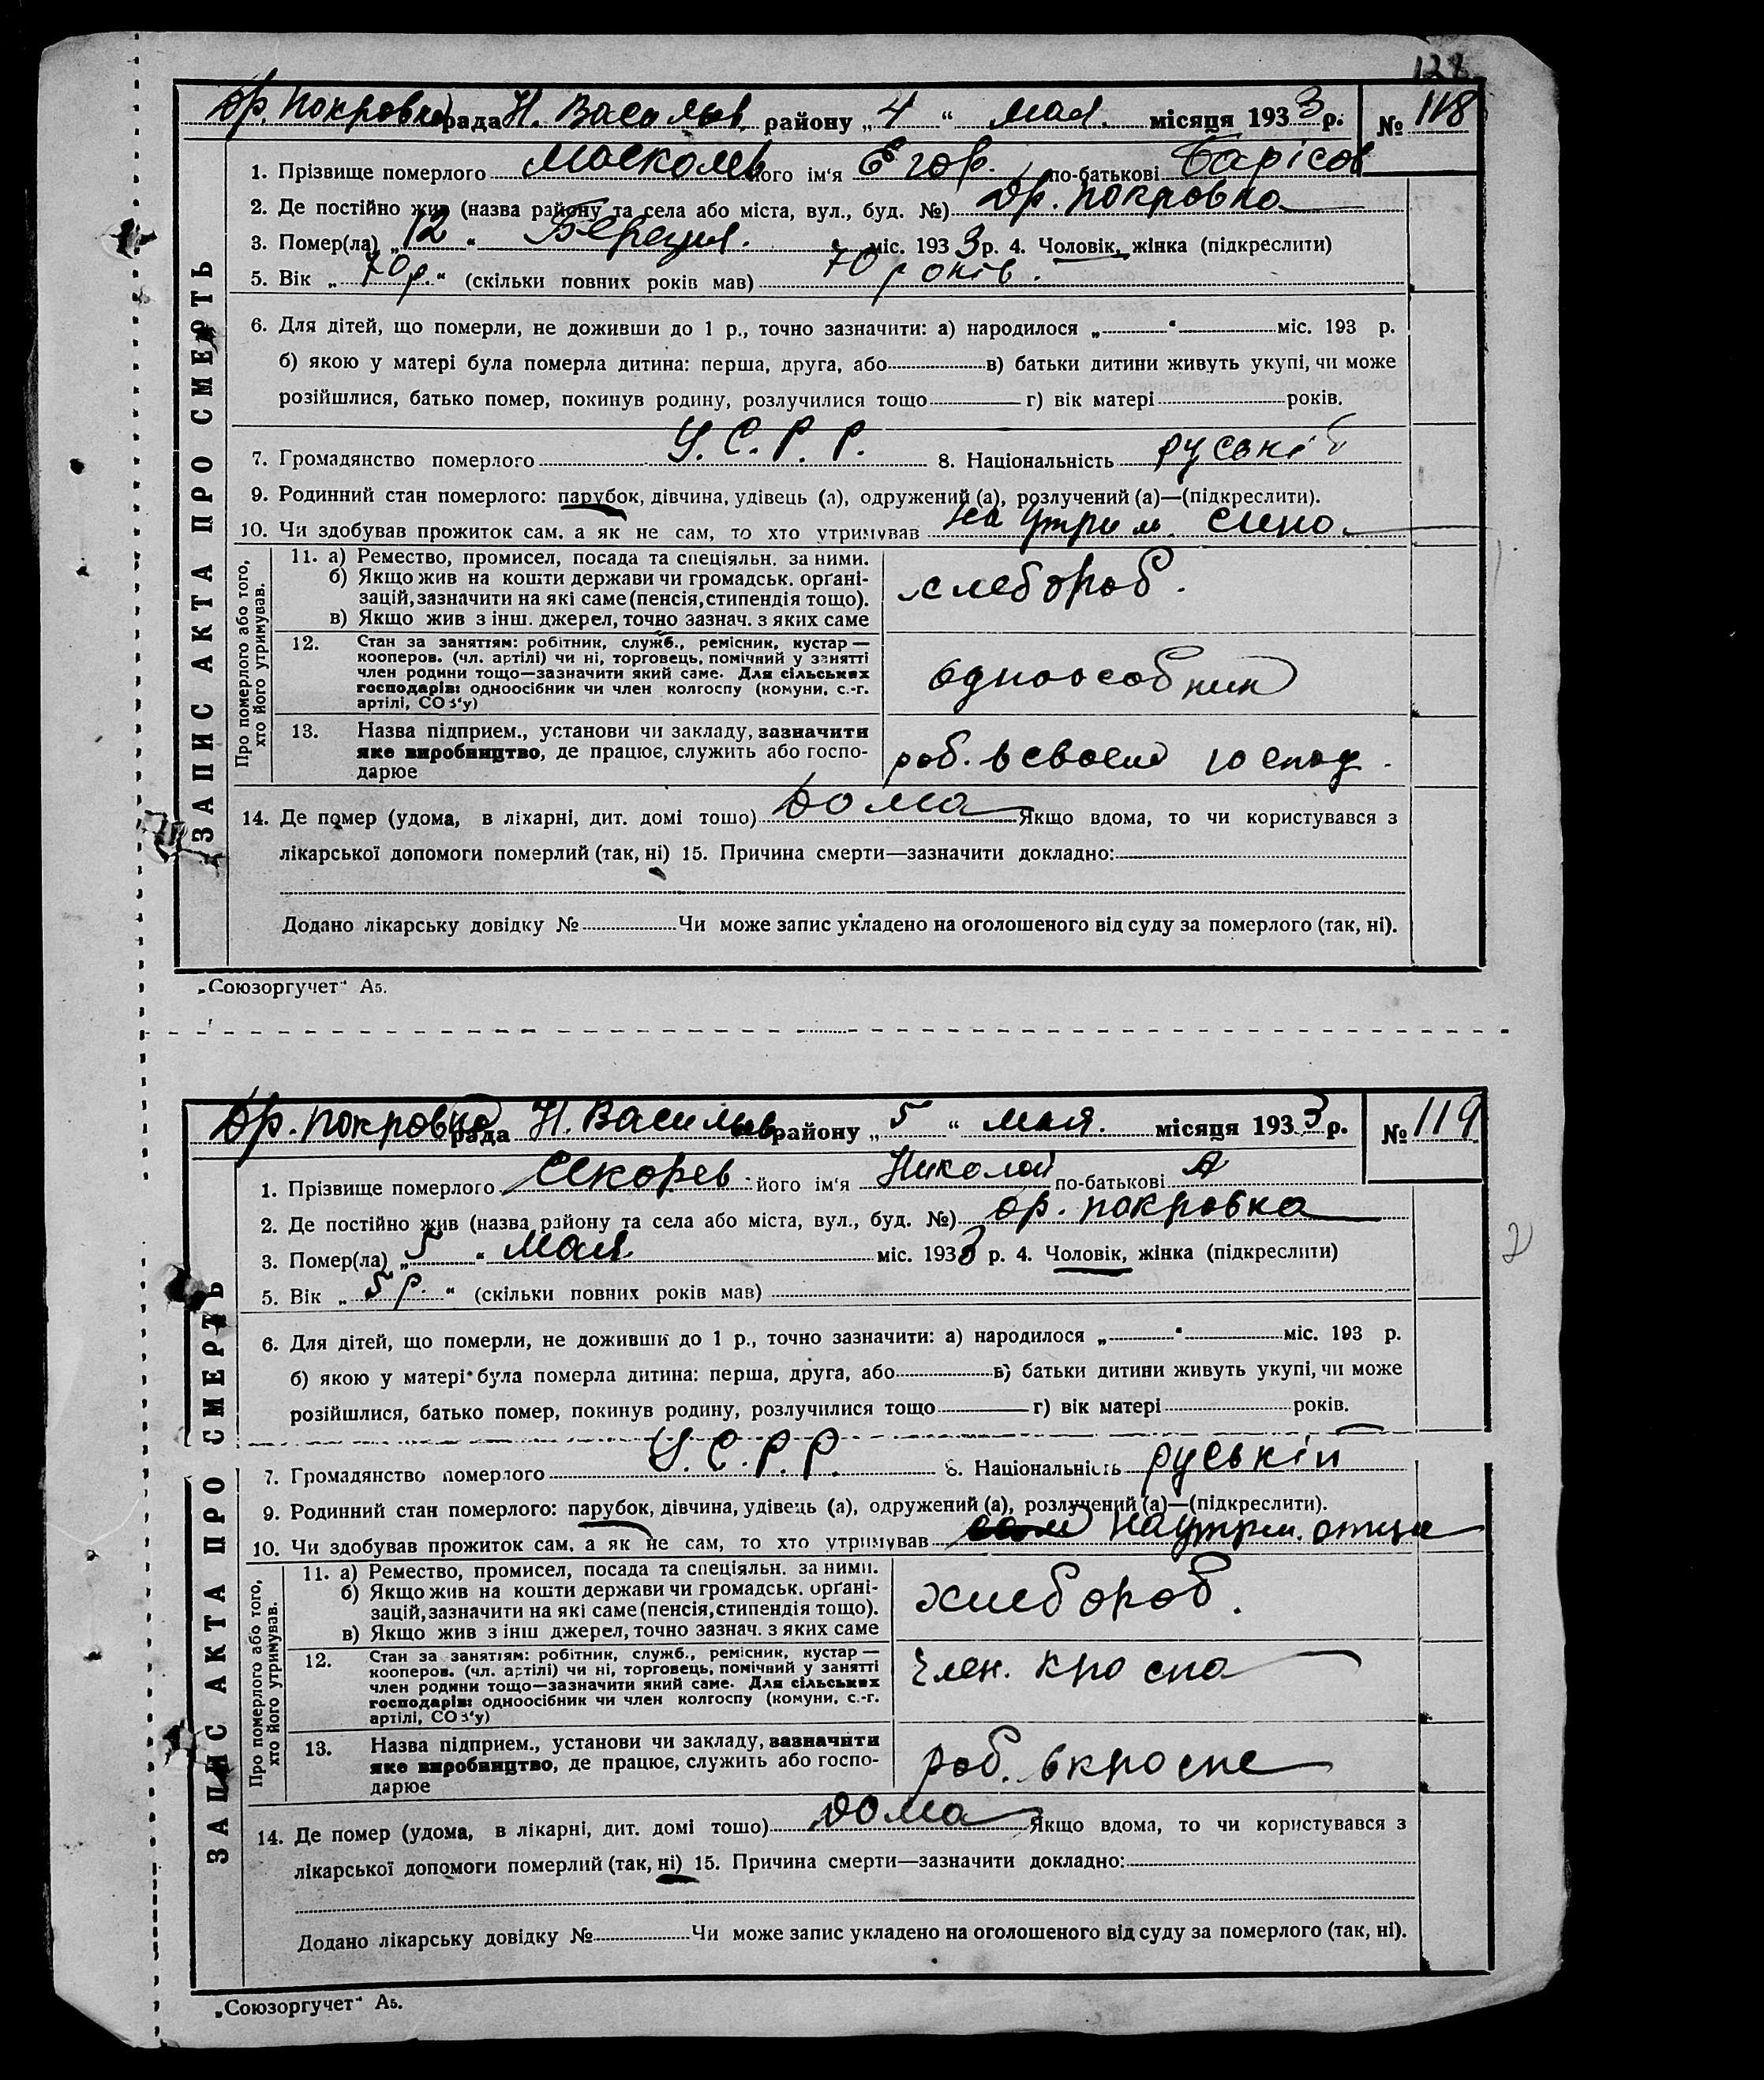 128
Др. Покровка рада Н. Васильев. району „4“ мая. місяця 1933 р. № 118
1. Прізвище померлого Москолев його ім‘я Егор. по-батькові Барісов
2. Де постійно жив (назва району та села або міста, вул., буд. №) Др. покровка
3. Помер(ла) „12“ міс. 1933 р. 4. Чоловік, жінка (підкреслити)
5. Вік „70 р.“ (скільки повних років мав) 70 років.
6. Для дітей, що померли, не доживши до 1 р., точно зазначити: а) народилося „ “ міс. 193 р.
б) якою у матері була померла дитина: перша, друга, або в) батьки дитини живуть укупі, чи може
розійшлися, батько помер, покинув родину, розлучилися тощо г) вік матері років.
7. Громадянство померлого У.С.Р.Р. 8. Національність руській
9. Родинний стан померлого: парубок, дівчина, удівець (а), одружений (а), розлучений (а)—(підкреслити).
10. Чи здобував прожиток сам, а як не сам, то хто утримував на утрим. сина
ЗАПИС АКТА ПРО СМЕРТЬ
Про померлого або того, хто його утримував.
11. а) Ремество, промисел, посада та спеціяльн. за ними.
б) Якщо жив на кошти держави чи громадськ. орґані-
зацій, зазначити на які саме (пенсія, стипендія тощо).
в) Якщо жив з інш. джерел, точно зазнач. з яких саме
хлебороб.
12. Стан за заняттям: робітник, служб., ремісник, кустар —
кооперов. (чл. артілі) чи ні, торговець, помічний у занятті
член родини тощо—зазначити який саме. Для сільських
господарів: одноосібник чи член колгоспу (комуни, с.-г.
артілі, СОЗ‘у)
одноособник
13. Назва підприєм., установи чи закладу, зазначити
яке виробництво, де працює, служить або госпо-
дарює
роб. в своем господ.
14. Де помер (удома, в лікарні, дит. домі тощо) дома Якщо вдома, то чи користувався з
лікарської допомоги померлий (так, ні) 15. Причина смерти—зазначити докладно:
Додано лікарську довідку № Чи може запис укладено на оголошеного від суду за померлого (так, ні).
„Союзоргучет“ А5.
Др. покровка рада Н. Васильев району „5“ мая. місяця 1933 р. № 119
1. Прізвище померлого його ім‘я Николай по-батькові А
2. Де постійно жив (назва району та села або міста, вул., буд. №) др. покровка
3. Помер(ла) „5“ мая міс. 1933 р. 4. Чоловік, жінка (підкреслити)
2
5. Вік „5 р.“ (скільки повних років мав)
6. Для дітей, що померли, не доживши до 1 р., точно зазначити: а) народилося „ “ міс. 193 р.
б) якою у матері була померла дитина: перша, друга, або в) батьки дитини живуть укупі, чи може
розійшлися, батько помер, покинув родину, розлучилися тощо г) вік матері років.
7. Громадянство померлого У.С.Р.Р. 8. Національність руській
9. Родинний стан померлого: парубок, дівчина, удівець (а), одружений (а), розлучений (а)—(підкреслити).
10. Чи здобував прожиток сам, а як не сам, то хто утримував на утрим. отца
ЗАПИС АКТА ПРО СМЕРТЬ
Про померлого або того, хто його утримував.
11. а) Ремество, промисел, посада та спеціяльн. за ними.
б) Якщо жив на кошти держави чи громадськ. орґані-
зацій, зазначити на які саме (пенсія, стипендія тощо).
в) Якщо жив з інш джерел, точно зазнач. з яких саме
хлебороб.
12. Стан за заняттям: робітник, служб., ремісник, кустар —
кооперов. (чл. артілі) чи ні, торговець, помічний у занятті
член родини тощо—зазначити який саме. Для сільських
господарів: одноосібник чи член колгоспу (комуни, с.-г.
артілі, СОЗ‘у)
член.
13. Назва підприєм., установи чи закладу, зазначити
яке виробництво, де працює, служить або госпо-
дарює
роб. в
14. Де помер (удома, в лікарні, дит. домі тощо) дома Якщо вдома, то чи користувався з
лікарської допомоги померлий (так, ні) 15. Причина смерти—зазначити докладно:
Додано лікарську довідку № Чи може запис укладено на оголошеного від суду за померлого (так, ні).
„Союзоргучет“ А5.